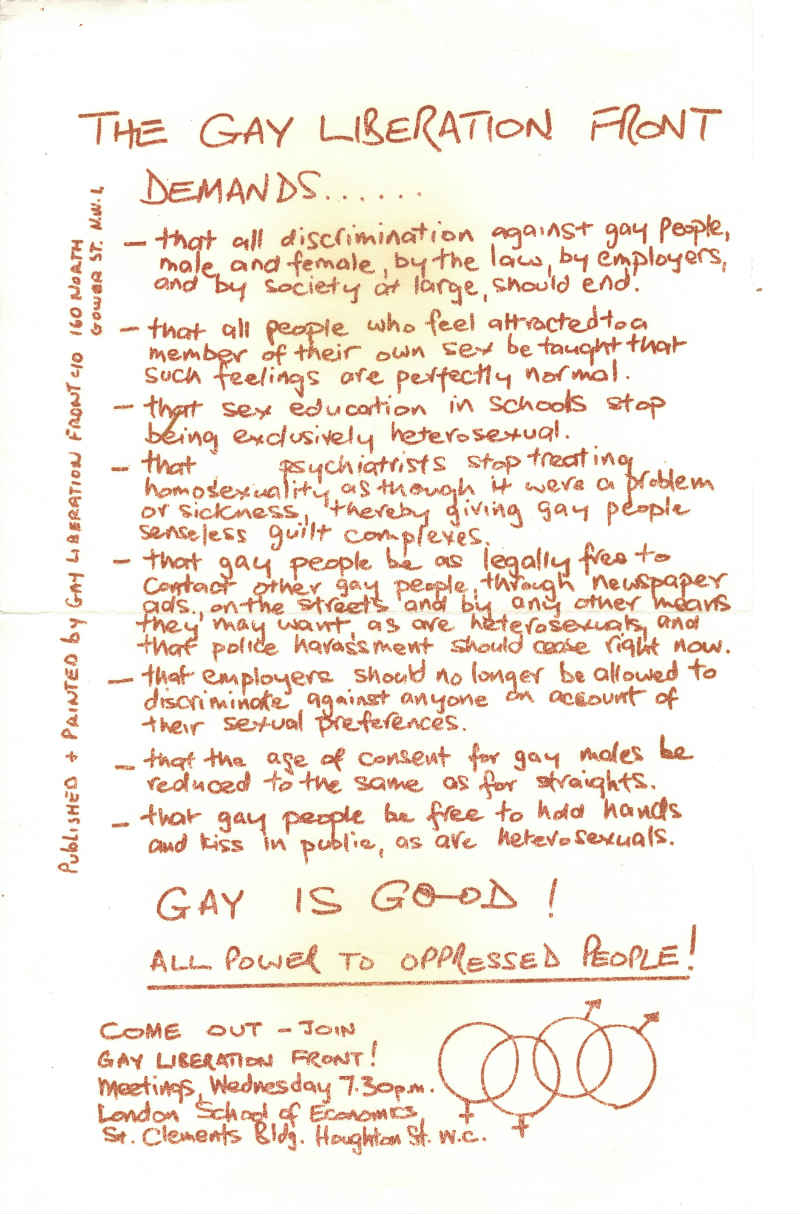 THE GAY LIBERATION FRONT
DEMANDS......
– that all discrimination against gay people,
male and female, by the law, by employers,
and by society at large, should end.
– that all people who feel attracted to a
member of their own sex be taught that
such feelings are perfectly normal.
– that sex education in schools stop
being exclusively heterosexual.
– that psychiatrists stop treating
homosexuality as though it were a problem
or sickness, thereby giving gay people
senseless guilt complexes.
– that gay people be as legally free to
contact other gay people, through newspaper
ads., on the streets and by any other means
they may want, as are heterosexuals, and
that police harassment should cease right now.
– that employers should no longer be allowed to
discriminate against anyone on account of
their sexual preferences.
– that the age of consent for gay males be
reduced to the same as for straights.
– that gay people be free to hold hands
and kiss in public, as are heterosexuals.
GAY IS GOOD!
ALL POWER TO OPPRESSED PEOPLE!
COME OUT – JOIN
GAY LIBERATION FRONT!
Meetings, Wednesday 7.30p.m.
London School of Economics,
St. Clements Bldg. Houghton St. W.C.
PUBLISHED + PRINTED by GAY LIBERATION FRONT c/o 160 NORTH
GOWER ST. N.W.1,